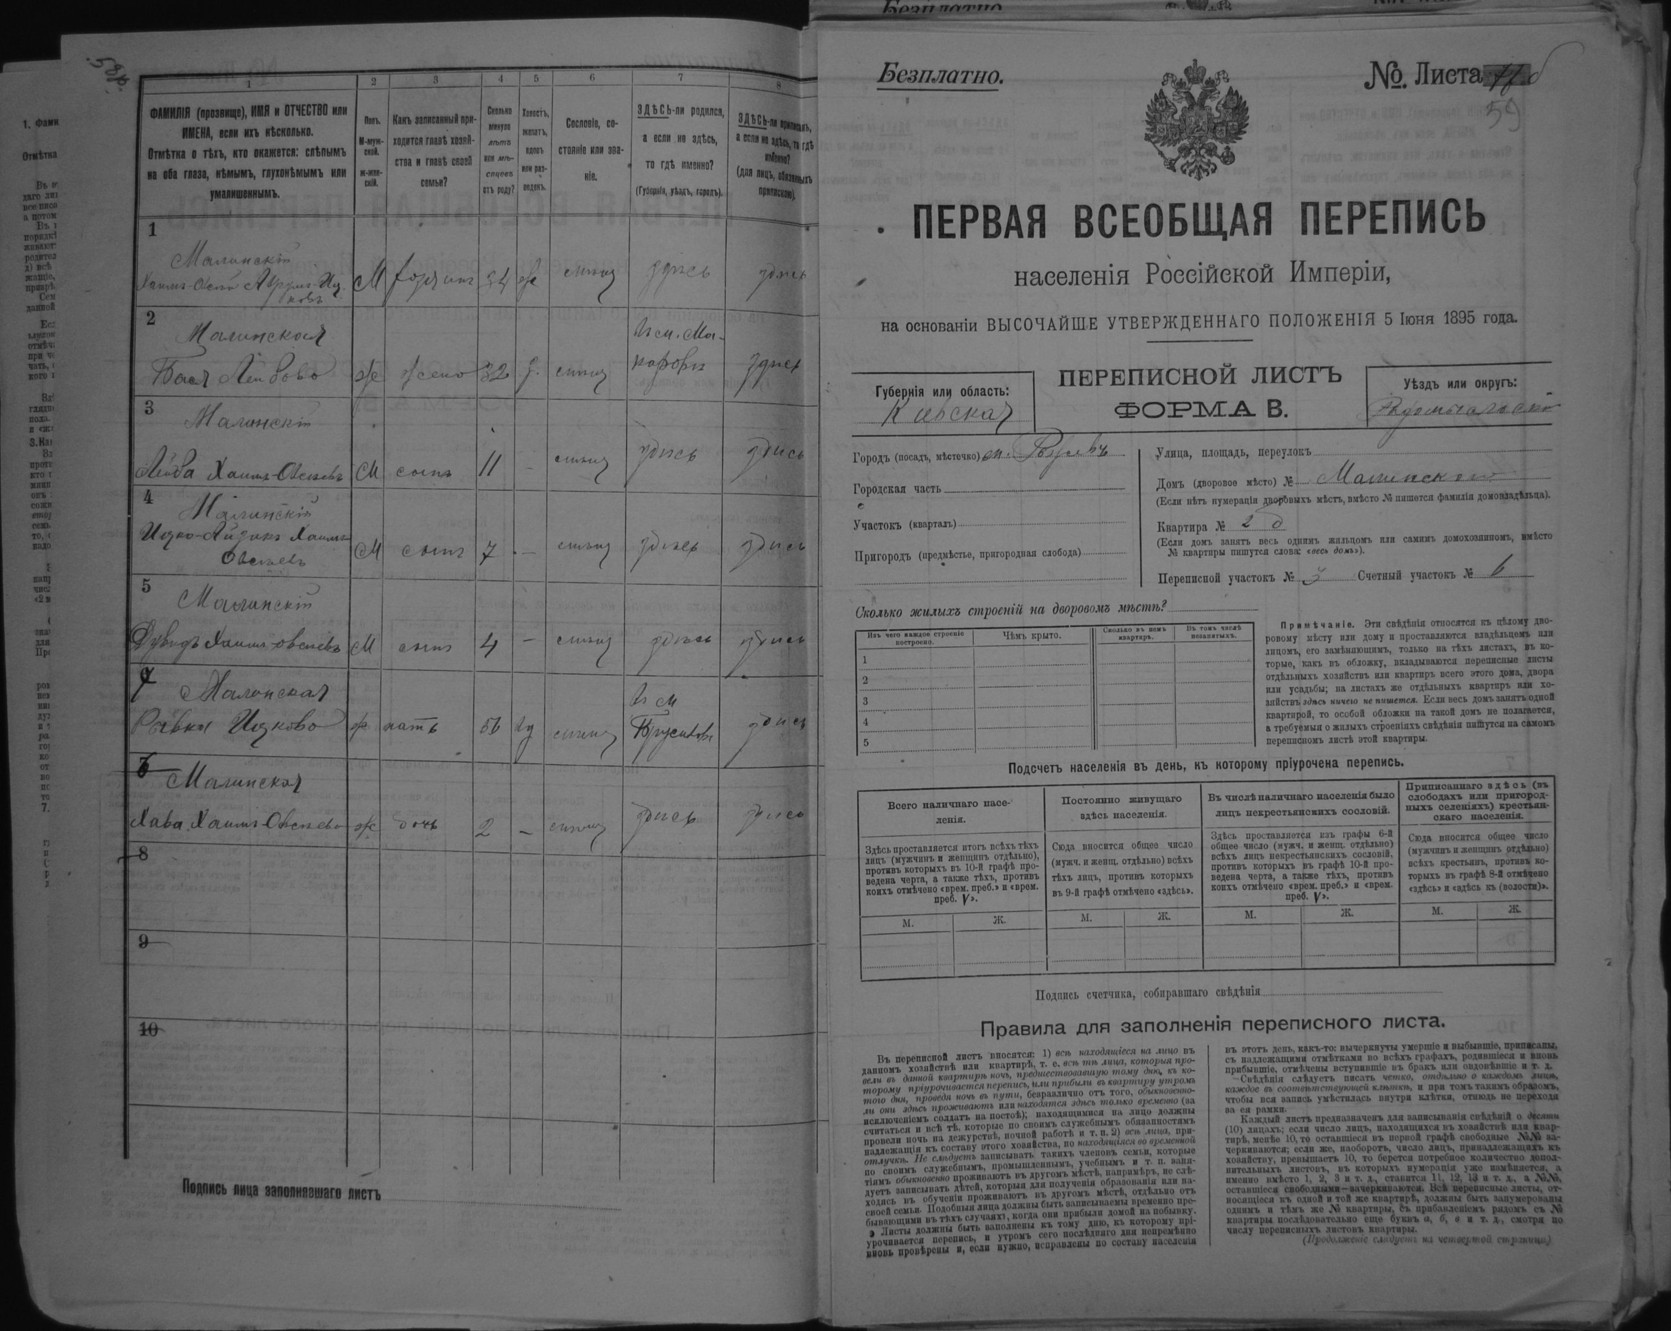 Безплатно.
58об.
1 2 3 4 5 6 7 8
ФАМИЛІЯ (прозвище), ИМЯ и ОТЧЕСТВО или
ИМЕНА, если ихъ нѣсколько.
Отмѣтка о тѣхъ, кто окажется: слѣпымъ
на оба глаза, нѣмымъ, глухонѣмымъ или
умалишеннымъ.
Полъ.
М-муж-
ской.
ж-жен-
скій.
Какъ записанный при-
ходится главѣ хозяй-
ства и главѣ своей
семьи?
Сколько
минуло
лѣтъ
или мѣ-
сяцевъ
отъ роду?
Холостъ,
женатъ,
вдовъ
или раз-
веденъ.
Сословіе, со-
стояніе или зва-
ніе.
ЗДѢСЬ-ли родился,
а если не здѣсь,
то гдѣ именно?
(Губернія, уѣздъ, городъ).
ЗДѢСЬ-ли приписанъ,
а если не здѣсь, то гдѣ
именно?
(для лицъ, обязанныхъ
припискою).
1
Малинскій
М здѣсь здѣсь
2
Малинская
Бася Лейбова ж жена здѣсь
3
Малинскій
Лейба Хаимъ-Овсеевъ М сынъ 11 - здѣсь здѣсь
4
Малинскій
Ицко-Айзикъ Хаимъ-
Овсеевъ М сынъ 7 - здѣсь здѣсь
5
Малинскій
Дувидъ Хаимъ-Овсеевъ М сынъ 4 - здѣсь здѣсь
7
Малинская
Ривка Ицкова ж мать здѣсь
6
Малинская
Хава Хаимъ-Овсеева ж дочь 2 - здѣсь здѣсь
8
9
10
Подпись лица заполнявшаго листъ
Безплатно.
№. Листа
59
ПЕРВАЯ ВСЕОБЩАЯ ПЕРЕПИСЬ
населенія Россійской Имперіи,
на основаніи ВЫСОЧАЙШЕ УТВЕРЖДЕННАГО ПОЛОЖЕНІЯ 5 Іюня 1895 года.
Губернія или область:
Кіевская
ПЕРЕПИСНОЙ ЛИСТЪ
ФОРМА В.
Уѣздъ или округъ:
Городъ (посадъ, мѣстечко)
Городская часть
Участокъ (кварталъ)
Пригородъ (предмѣстье, пригородная слобода)
Улица, площадь, переулокъ
Домъ (дворовое мѣсто) № Малинскаго
(Если нѣтъ нумераціи дворовыхъ мѣстъ, вмѣсто № пишется фамилія домовладѣльца).
Квартира № 2 б
(Если домъ занятъ весь однимъ жильцомъ или самимъ домохозяиномъ, вмѣсто
№ квартиры пишутся слова: «весь домъ»).
Переписной участокъ № 3 Счетный участокъ № 6
Сколько жилыхъ строеній на дворовомъ мѣстѣ?
Изъ чего каждое строеніе
построено.
Чѣмъ крыто.
Сколько въ немъ
квартиръ.
Въ томъ числѣ
незанятыхъ.
1
2
3
4
5
Примѣчаніе. Эти свѣдѣнія относятся къ цѣлому дво-
ровому мѣсту или дому и проставляются владѣльцемъ или
лицомъ, его замѣняющимъ, только на тѣхъ листахъ, въ ко-
торые, какъ въ обложку, вкладываются переписные листы
отдѣльныхъ хозяйствъ или квартиръ всего этого дома, двора
или усадьбы; на листахъ же отдѣльныхъ квартиръ или хо-
зяйствъ здѣсь ничего не пишется. Если весь домъ занятъ одной
квартирой, то особой обложки на такой домъ не полагается,
а требуемыя о жилыхъ строеніяхъ свѣдѣнія пишутся на самомъ
переписномъ листѣ этой квартиры.
Подсчетъ населенія въ день, къ которому пріурочена перепись.
Всего наличнаго насе-
ленія.
Здѣсь проставляется итогъ всѣхъ тѣхъ
лицъ (мужчинъ и женщинъ отдѣльно),
противъ которыхъ въ 10-й графѣ про-
ведена черта, а также тѣхъ, противъ
коихъ отмѣчено «врем. преб.» и «врем.
преб. V».
Постоянно живущаго
здѣсь населенія.
Сюда вносится общее число
(мужч. и женщ. отдѣльно) всѣхъ
тѣхъ лицъ, противъ которыхъ
въ 9-й графѣ отмѣчено «здѣсь».
Въ числѣ наличнаго населенія было
лицъ некрестьянскихъ сословій.
Здѣсь проставляется изъ графы 6-й
общее число (мужч. и женщ. отдѣльно)
всѣхъ лицъ некрестьянскихъ сословій,
противъ которыхъ въ графѣ 10-й про-
ведена черта, а также тѣхъ, противъ
коихъ отмѣчено «врем. преб.» и «врем.
преб. V».
Приписаннаго здѣсь (въ
слободахъ или пригород-
ныхъ селеніяхъ) крестьян-
скаго населенія.
Сюда вносится общее число
(мужчинъ и женщинъ отдѣльно)
всѣхъ крестьянъ, противъ ко-
торыхъ въ графѣ 8-й отмѣчено
«здѣсь» и «здѣсь къ (волости)».
М. Ж. М. Ж. М. Ж. М. Ж.
Подпись счетчика, собиравшаго свѣдѣнія
Правила для заполненія переписного листа.
Въ переписной листъ вносятся: 1) всѣ находящіеся на лицо въ
данномъ хозяйствѣ или квартирѣ, т. е. всѣ тѣ лица, которыя про-
вели въ данной квартирѣ ночь, предшествовавшую тому дню, къ ко-
торому пріурочивается перепись, или прибыли въ квартиру утромъ
того дня, проведя ночь въ пути, безразлично отъ того, обыкновенно-
ли они здѣсь проживаютъ или находятся здѣсь только временно (за
исключеніемъ солдатъ на постоѣ); находящимися на лицо должны
считаться и всѣ тѣ, которые по своимъ служебнымъ обязанностямъ
провели ночь на дежурствѣ, ночной работѣ и т. п. 2) всѣ лица, при-
надлежащія къ составу этого хозяйства, но находящіяся во временной
отлучкѣ. Не слѣдуетъ записывать такихъ членовъ семьи, которые
по своимъ служебнымъ, промышленнымъ, учебнымъ и т. п. заня-
тіямъ обыкновенно проживаютъ въ другомъ мѣстѣ, напримѣръ, не слѣ-
дуетъ записывать дѣтей, которыя для полученія образованія или на-
ходясь въ обученіи проживаютъ въ другомъ мѣстѣ, отдѣльно отъ
своей семьи. Подобныя лица должны быть записываемы временно пре-
бывающими въ тѣхъ случаяхъ, когда они прибыли домой на побывку.
Листы должны быть заполнены къ тому дню, къ которому прі-
урочивается перепись, и утромъ сего послѣдняго дня непремѣнно
вновь провѣрены и, если нужно, исправлены по составу населенія
въ этотъ день, какъ-то: вычеркнуты умершіе и выбывшіе, приписаны,
съ надлежащими отмѣтками во всѣхъ графахъ, родившіеся и вновь
прибывшіе, отмѣчены вступившіе въ бракъ или овдовѣвшіе и т. д.
Свѣдѣнія слѣдуетъ писать четко, отдѣльно о каждомъ лицѣ,
каждое въ соотвѣтствующей клѣткѣ, и при томъ такимъ образомъ,
чтобы вся запись умѣстилась внутри клѣтки, отнюдь не переходя
за ея рамки.
Каждый листъ предназначенъ для записыванія свѣдѣній о десяти
(10) лицахъ; если число лицъ, находящихся въ хозяйствѣ или квар-
тирѣ, менѣе 10, то оставшіеся въ первой графѣ свободные №№ за-
черкиваются; если же, наоборотъ, число лицъ, принадлежащихъ къ
хозяйству, превышаетъ 10, то берется потребное количество допол-
нительныхъ листовъ, въ которыхъ нумерація уже измѣняется, а
именно вмѣсто 1, 2, 3 и т. д., ставится 11, 12, 13 и т. д., а №№,
оставшіеся свободными—зачеркиваются. Всѣ переписные листы, от-
носящіеся къ одной и той же квартирѣ, должны быть занумерованы
однимъ и тѣмъ же № квартиры, съ прибавленіемъ рядомъ съ №
квартиры послѣдовательно еще буквъ а, б, в и т. д., смотря по
числу переписныхъ листовъ квартиры.
(Продолженіе слѣдуетъ на четвертой страницѣ)